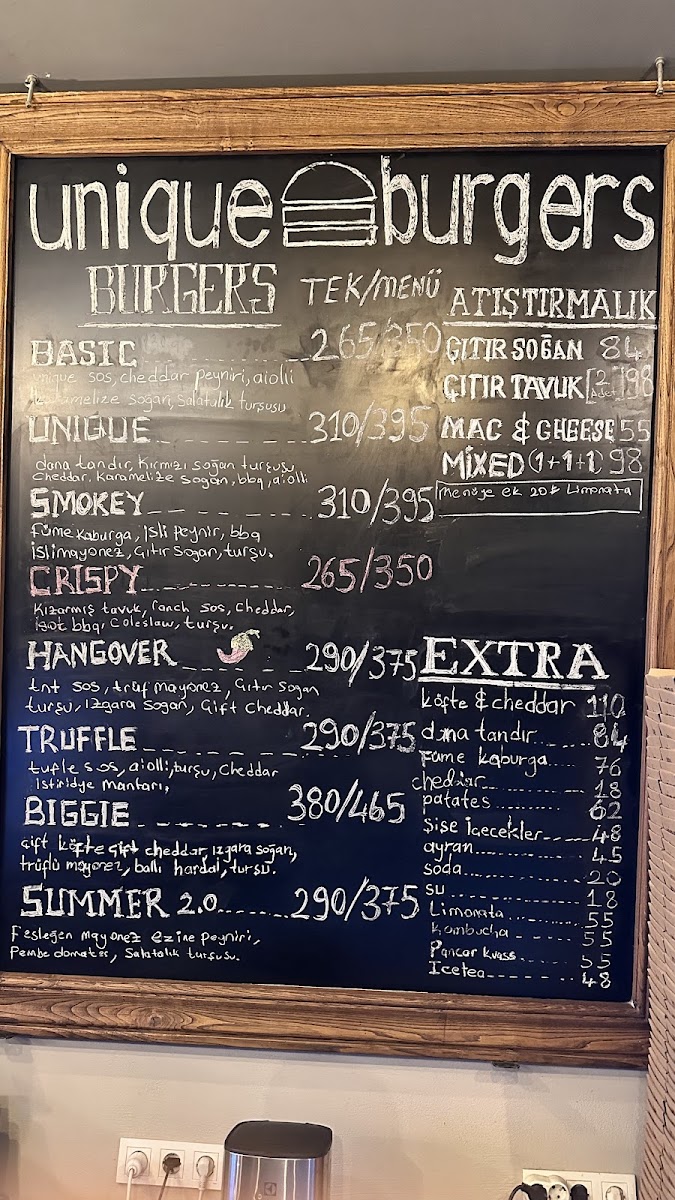 unique burgers
BURGERS TEK/MENÜ
BASIC 265/350
unique sos, cheddar peyniri, aiolli
karamelize soğan, salatalık turşusu
UNIQUE 310/395
dana tandır, kırmızı soğan turşusu
cheddar, karamelize soğan, bbq, aiolli
SMOKEY 310/395
füme kaburga, isli peynir, bbq
islimayonez, Çıtır soğan, turşu.
CRISPY 265/350
kızarmış tavuk, ranch sos, cheddar,
bbq, coleslaw, turşu.
HANGOVER 290/375
tnt sos, trüf mayonez, Çıtır soğan
turşu, ızgara soğan, Çift cheddar.
TRUFFLE 290/375
tufle sos, aiolli, turşu, cheddar
istiridye mantarı,
BIGGIE 380/465
Çift köfte Çift cheddar, ızgara soğan,
trüflü mayonez, ballı hardal, turşu.
SUMMER 2.0 290/375
Fesleğen mayonez ezine peyniri,
Pembe domates, Salatalık turşusu.
ATIŞTIRMALIK
ÇITIR SOĞAN 84
ÇITIR TAVUK [2 Adet] 98
MAC & CHEESE 55
MİXED (1+1+1) 98
menüye ek 20₺ Limonata
EXTRA
köfte & cheddar 110
dana tandır 84
Füme kaburga 76
cheddar 18
patates 62
şişe içecekler 48
ayran 45
soda 20
su 18
Limonata 55
kombucha 55
Pancar kvass 55
Icetea 48